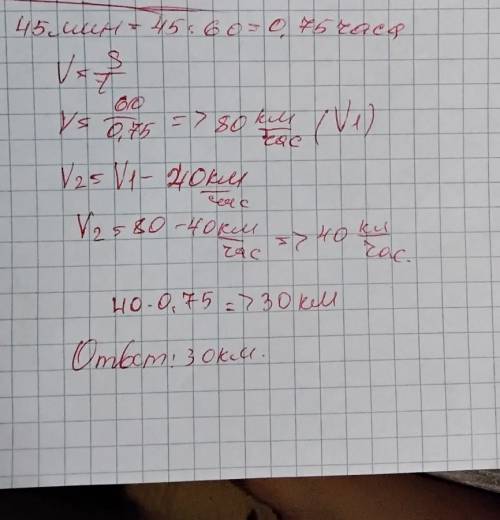 45 мин = 45 : 60 = 0,75 часа
V = S/t
V = 60/0,75 => 80 км/час (V1)
V2 = V1 - 40 км/час
V2 = 80 - 40 км/час => 40 км/час.
40 · 0,75 => 30 км
Ответ: 30 км.